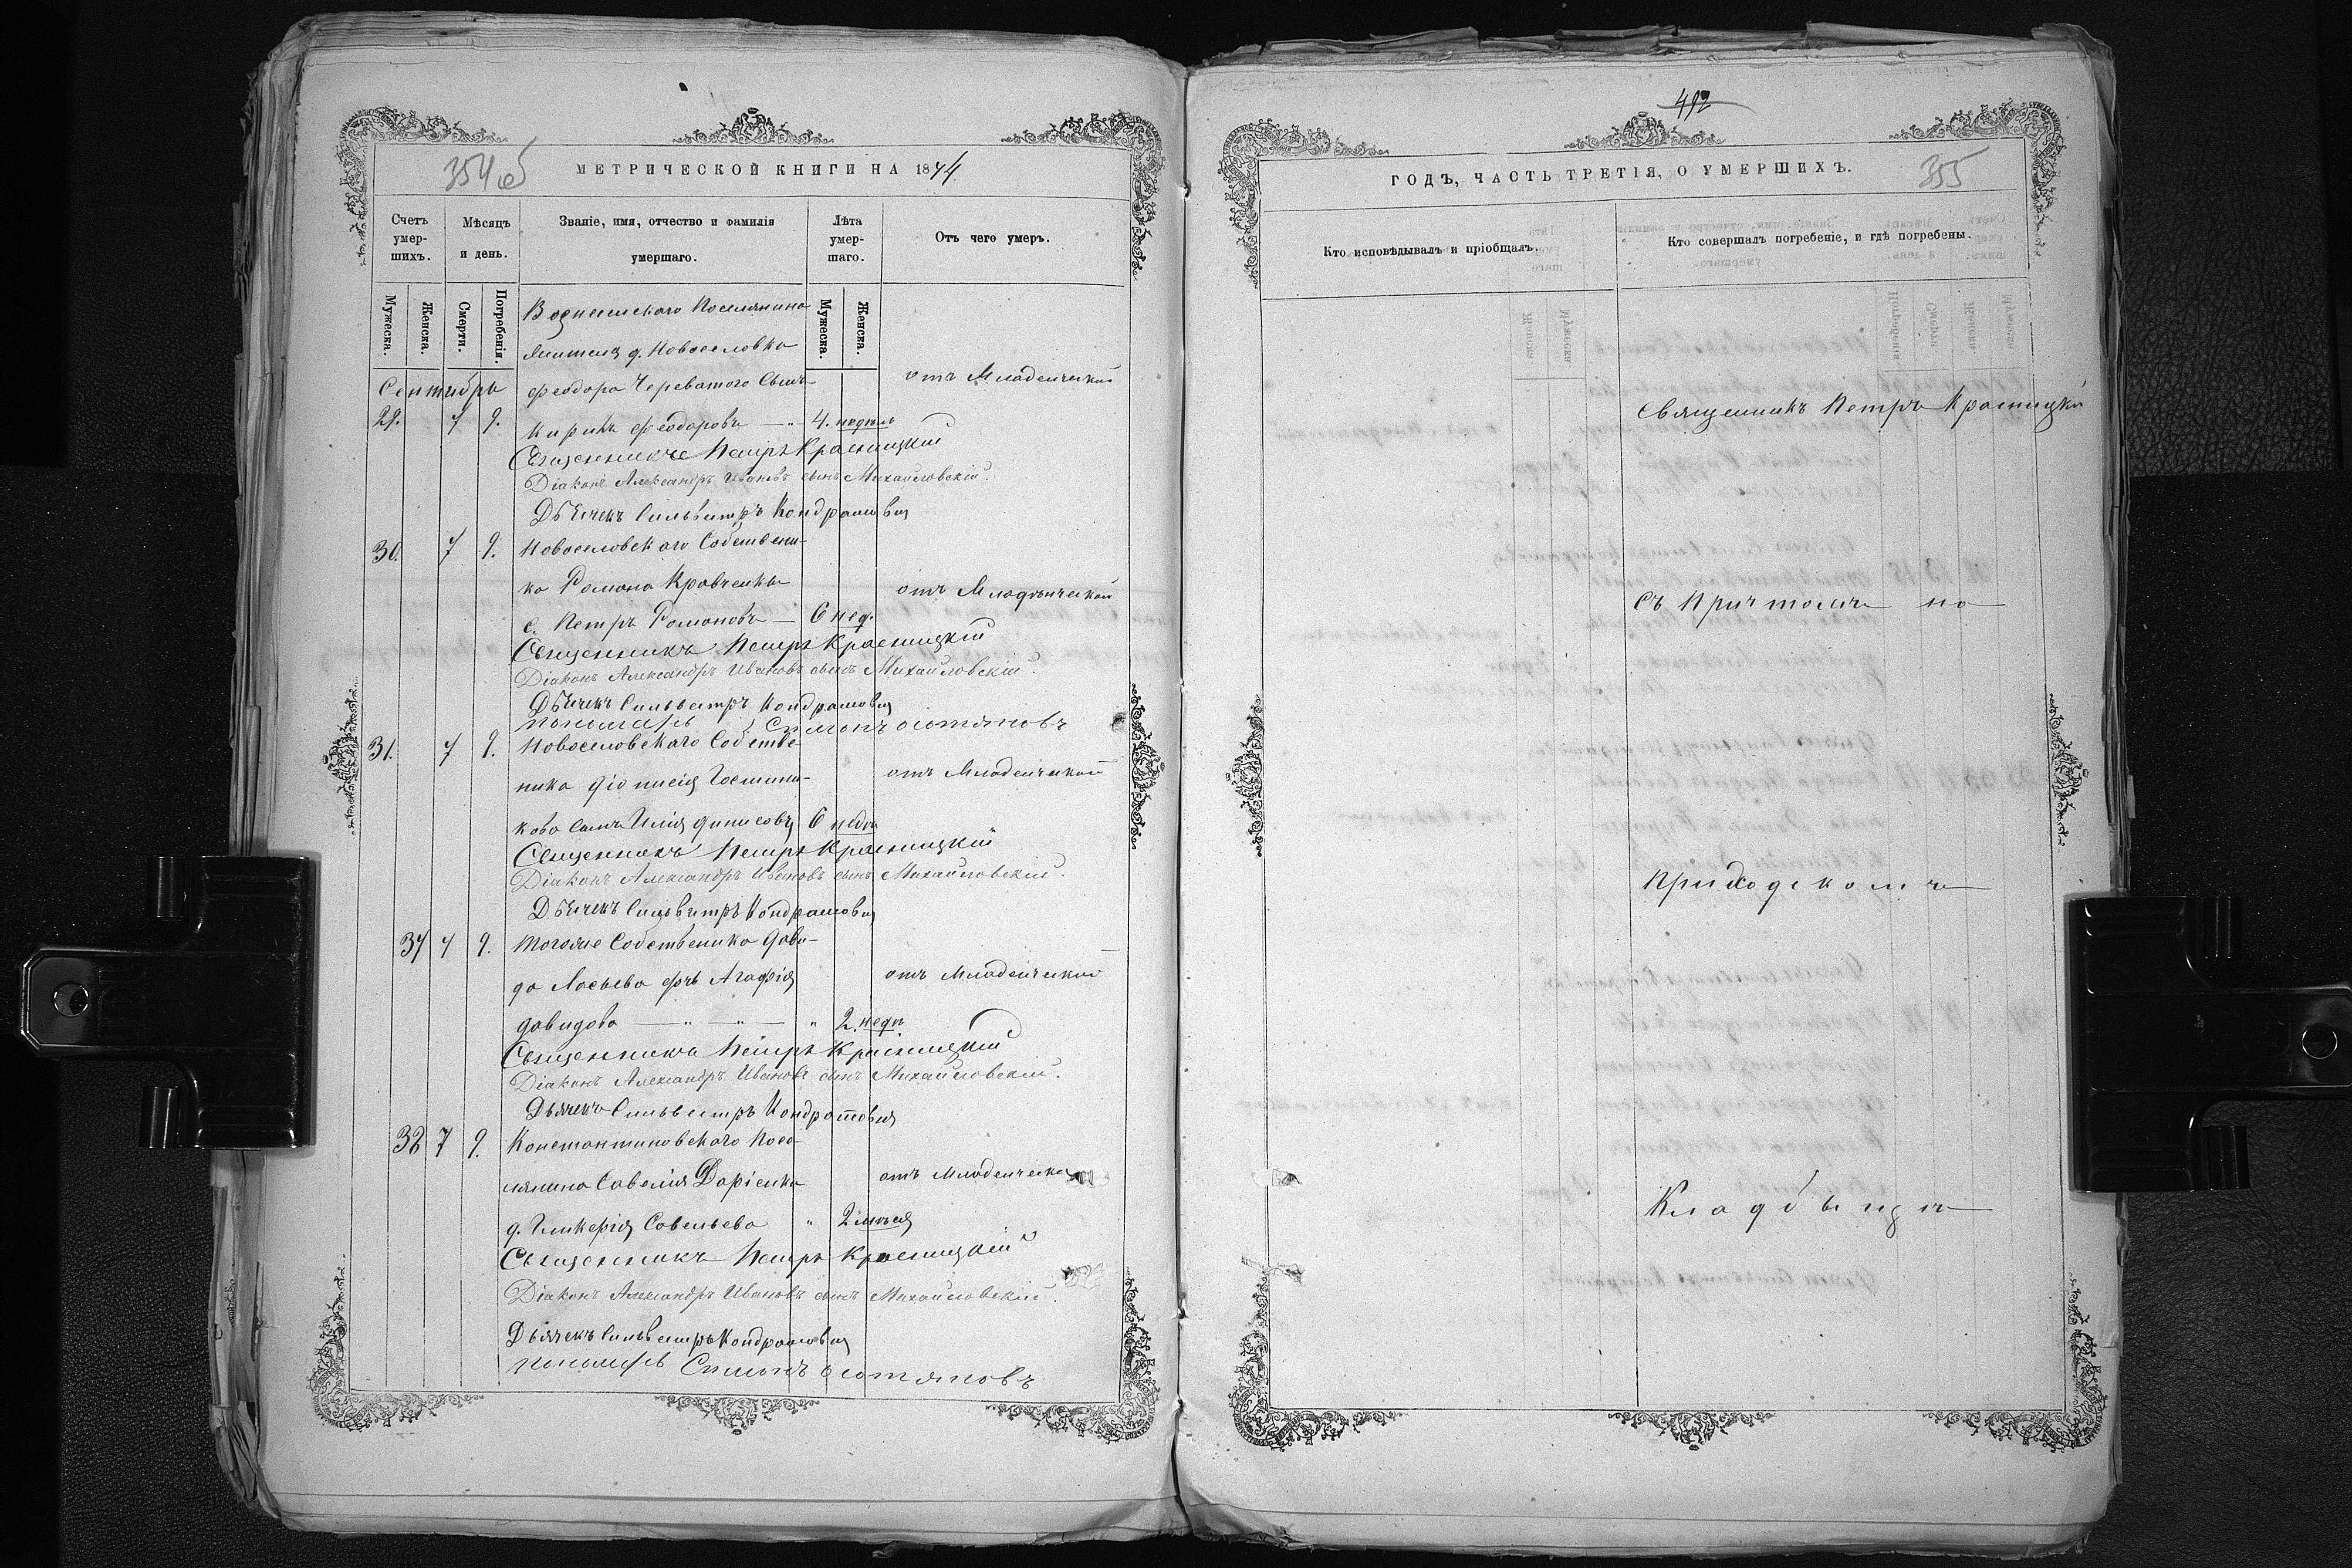 354 об
МЕТРИЧЕСКОЙ КНИГИ НА 1874
Счетъ умер-шихъ.
Мѣсяцъ и день.
Званіе, имя, отчество и фамилія умершаго.
Лѣта умер-шаго.
Отъ чего умеръ.
Мужеска.
Женска.
Смерти.
Погребенія.
Мужеска.
Женска.
Вознесенского Поселянина
жителя д. Новоселовка
Сентябрь Феодора Череватого Сынъ отъ Младенческой
29. 7 9. Кирилъ Феодоровъ — „ 4. недѣли
Священникъ Петръ Красницкій
Діаконъ Александръ Ивановъ сынъ Михайловскій.
Дьячекъ Сильвестръ Кондратович
30. 7 9. Новоселовского Собствени-
ка Романа Кравченка отъ Младенческой
с. Петръ Романовъ — 6 нед.
Священникъ Петръ Красницкій
Діаконъ Александръ Ивановъ сынъ Михайловскій.
Дьячекъ Сильвестръ Кондратович
пономарь Симонъ
31. 7 9. Новоселовского Собстве-
ника Діонисія отъ Младенческой
кова сынъ Илія Динисовъ 6 недѣ
Священникъ Петръ Красницкій
Діаконъ Александръ Ивановъ сынъ Михайловскій.
Дьячекъ Сильвестръ Кондратович
37 7 9. Тогоже Собственика Дави-
да Лосьева дчь Агафія отъ Младенческой
Давидова — „ — „ — „ 2. недѣ.
Священникъ Петръ Красницкій
Діаконъ Александръ Ивановъ сынъ Михайловскій.
Дьячекъ Сильвестръ Кондратович
38 7 9. Константиновского Посе-
лянина Савелія Даріенка отъ Младенческой
д. Гликерія Савельева „ 2 мѣся
Священникъ Петръ Красницкій
Діаконъ Александръ Ивановъ сынъ Михайловскій.
Дьячекъ Сильвестръ Кондратович
пономарь Симонъ
492
ГОДЪ, ЧАСТЬ ТРЕТІЯ, О УМЕРШИХЪ.
355
Кто исповѣдывалъ и пріобщалъ.
Кто совершалъ погребеніе, и гдѣ погребены.
Священникъ Петръ Красницкій
Съ Причтомъ на
Приходскомъ
Кладбищѣ